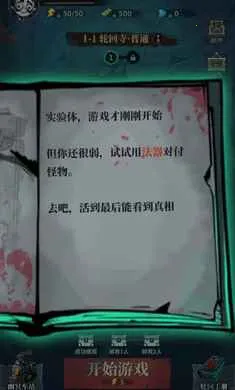 50/50
500
0
1-1 轮回寺·普通
1
实验体，游戏才刚刚开始
但你还很弱，试试用法器对付
怪物。
去吧，活到最后能看到真相
开始游戏
5